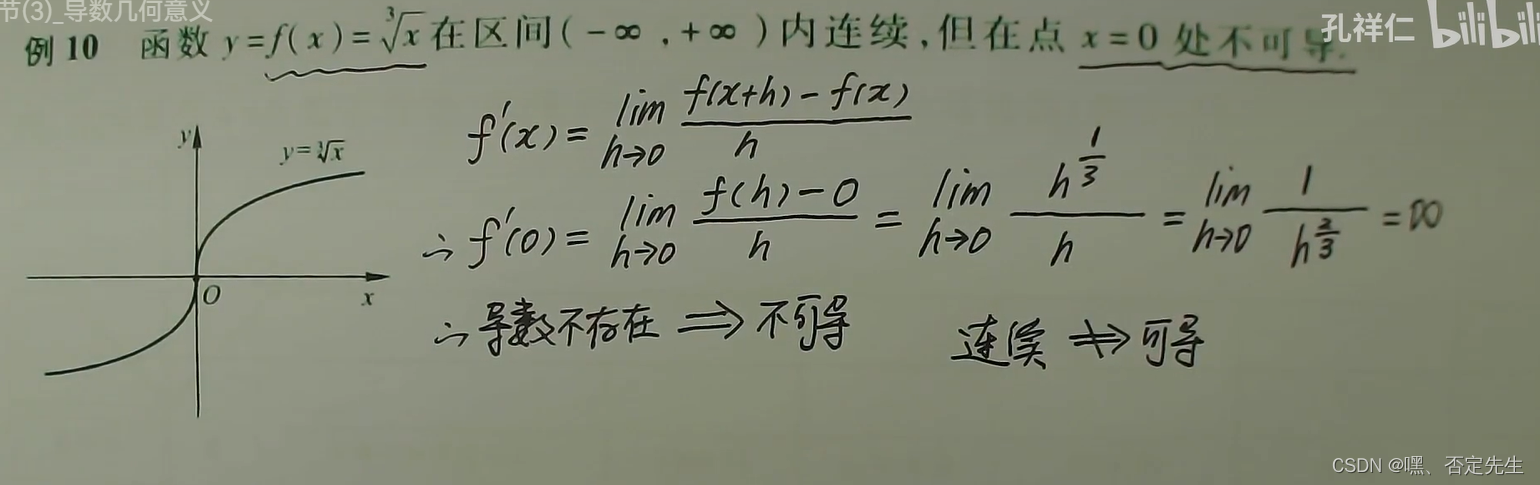 节(3)_导数几何意义
孔祥仁 bilibili
例 10 函数 y=f(x)=∛x在区间(-∞,+∞)内连续,但在点 x=0 处不可导.
f'(x) = lim h→0 (f(x+h)-f(x))/h
y
y=∛x
∴ f'(0) = lim h→0 (f(h)-0)/h = lim h→0 h^(1/3)/h = lim h→0 1/h^(2/3) = ∞
O
x
∴ 导数不存在 ⟹ 不可导 连续 ⇏ 可导
CSDN @嘿、否定先生